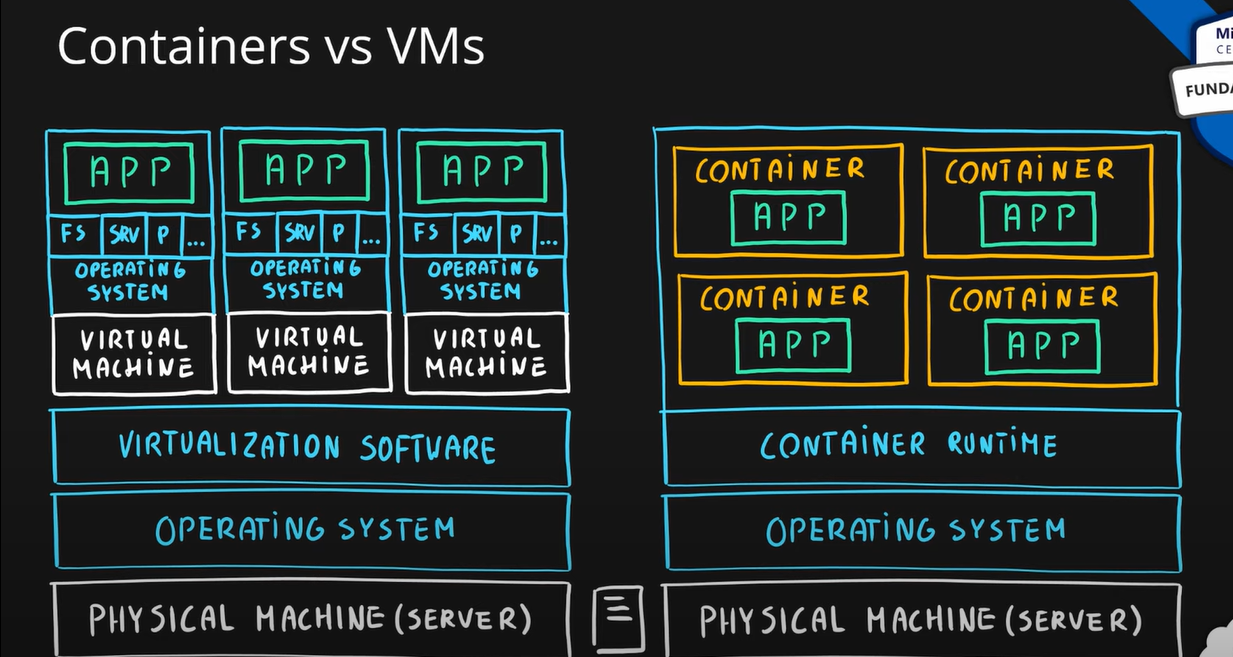 Containers vs VMs
APP
FS SRV P ...
OPERATING
SYSTEM
VIRTUAL
MACHINE
APP
FS SRV P ...
OPERATING
SYSTEM
VIRTUAL
MACHINE
APP
FS SRV P ...
OPERATING
SYSTEM
VIRTUAL
MACHINE
VIRTUALIZATION SOFTWARE
OPERATING SYSTEM
PHYSICAL MACHINE (SERVER)
CONTAINER
APP
CONTAINER
APP
CONTAINER
APP
CONTAINER
APP
CONTAINER RUNTIME
OPERATING SYSTEM
PHYSICAL MACHINE (SERVER)